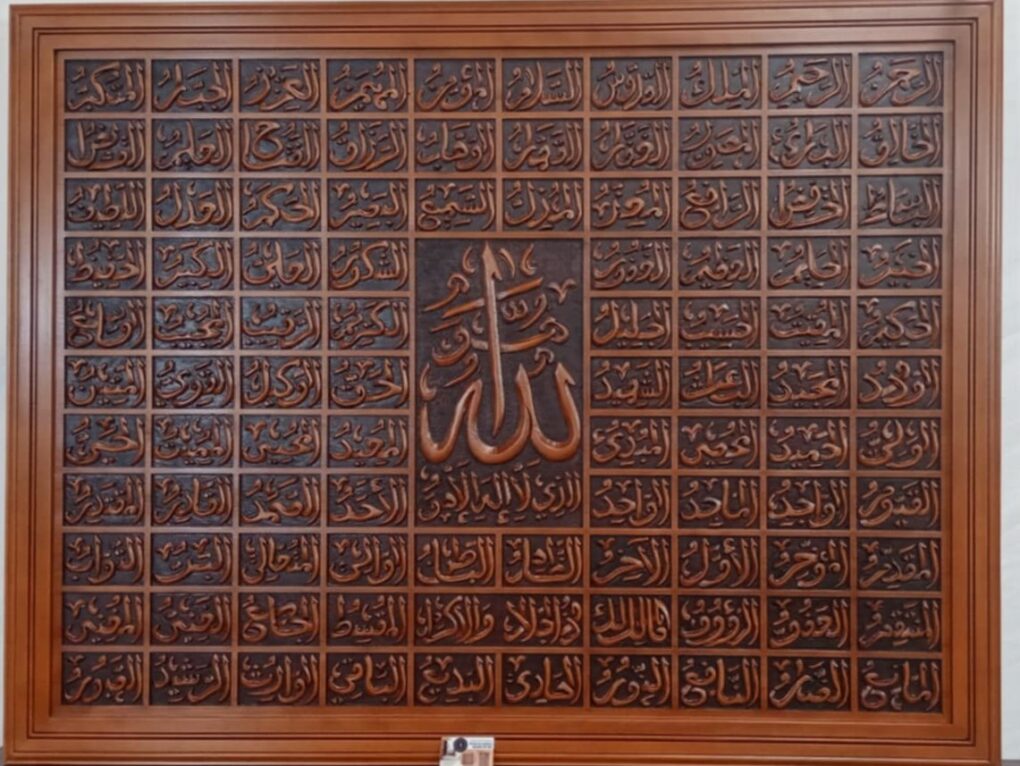 الرحمن الرحيم الملك القدوس السلام المؤمن المهيمن العزيز الجبار المتكبر
الخالق البارئ المصور الغفار القهار الوهاب الرزاق الفتاح العليم القابض
الباسط الخافض الرافع المعز المذل السميع البصير الحكم العدل اللطيف
الخبير الحليم العظيم الغفور الشكور العلي الكبير الحفيظ
المقيت الحسيب الجليل الكريم الرقيب المجيب الواسع
الودود المجيد الباعث الشهيد الحق الوكيل القوي المتين
الله
الولي الحميد المحصي المبدئ المعيد المحيي المميت الحي
القيوم الواجد الماجد الواحد الأحد الصمد القادر المقتدر
الذي لا إله إلا هو
المقدم المؤخر الأول الآخر الظاهر الباطن الوالي المتعالي البر التواب
المنتقم العفو الرؤوف مالك الملك ذو الجلال والإكرام المقسط الجامع الغني المغني
المانع الضار النافع النور الهادي البديع الباقي الوارث الرشيد الصبور